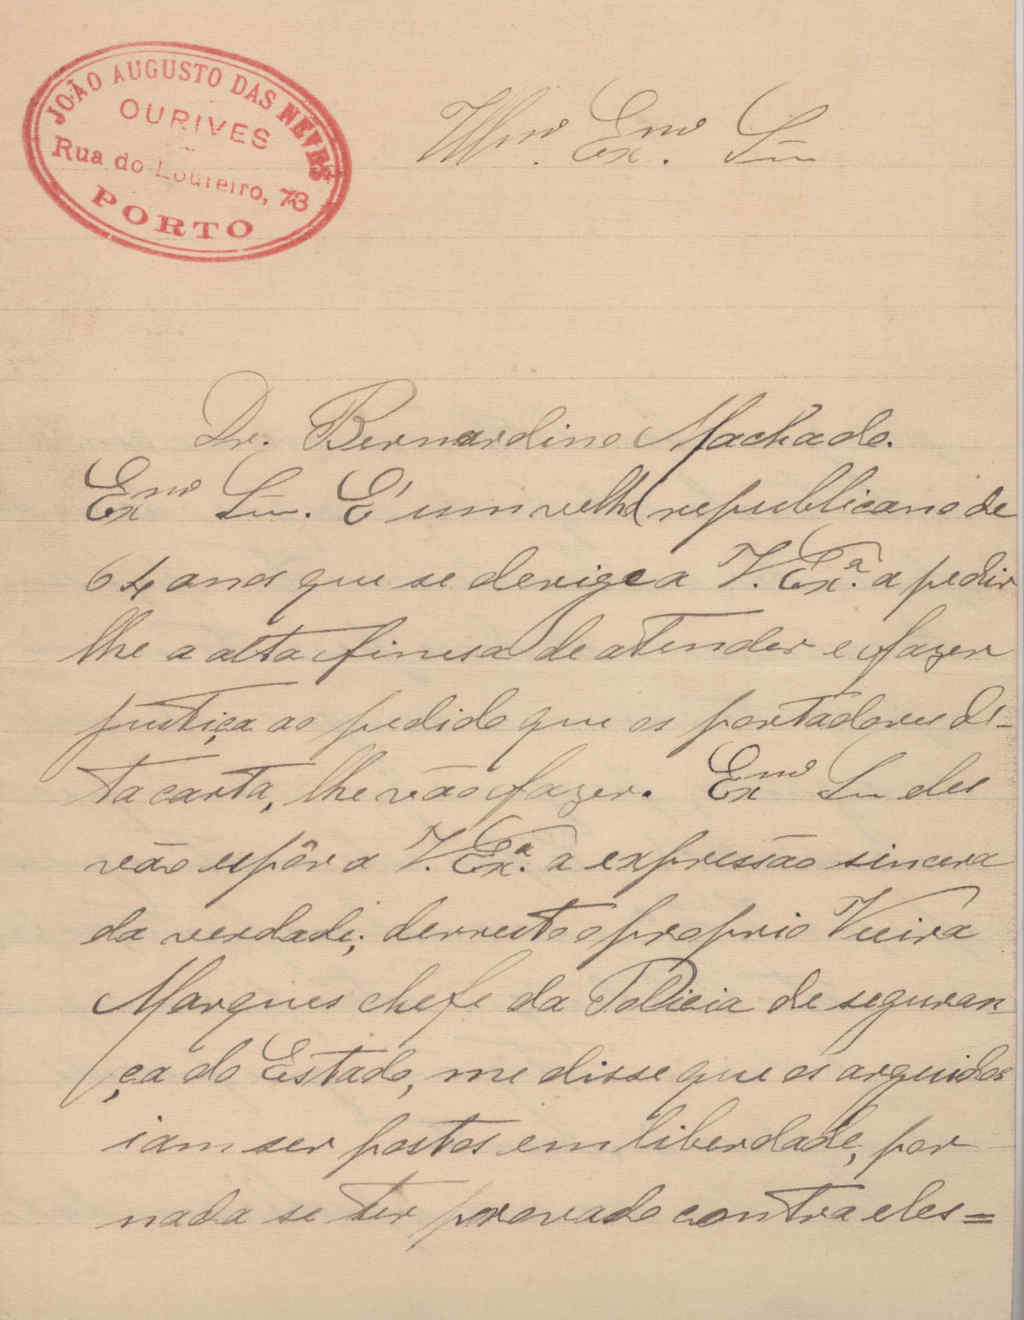 JOÃO AUGUSTO DAS NEVES
OURIVES
Rua do Loureiro, 73
PORTO
Illmo. Exmo. Snr
Dr. Bernardino Machado.
Exmo Snr. É um velho republicano de
64 anos que se derige a V. Exª. a pedir
lhe a alta finesa de atender e fazer
justiça ao pedido que os portadores des-
ta carta, lhe vão fazer. Exmo Snr eles
vão espôr a V. Exª. a expressão sincera
da verdade; derresto o proprio Vieira
Marques chefe da Policia de seguran
ça do Estado, me disse que os arguidos
iam ser postos em liberdade, por
nada se ter provado contra eles=